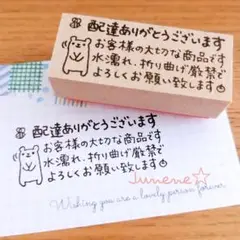 配達ありがとうございます
お客様の大切な商品です
水濡れ、折り曲げ厳禁で
よろしくお願い致します
配達ありがとうございます
お客様の大切な商品です
水濡れ、折り曲げ厳禁で
よろしくお願い致します
Junene☆
Wishing you are a lovely person forever